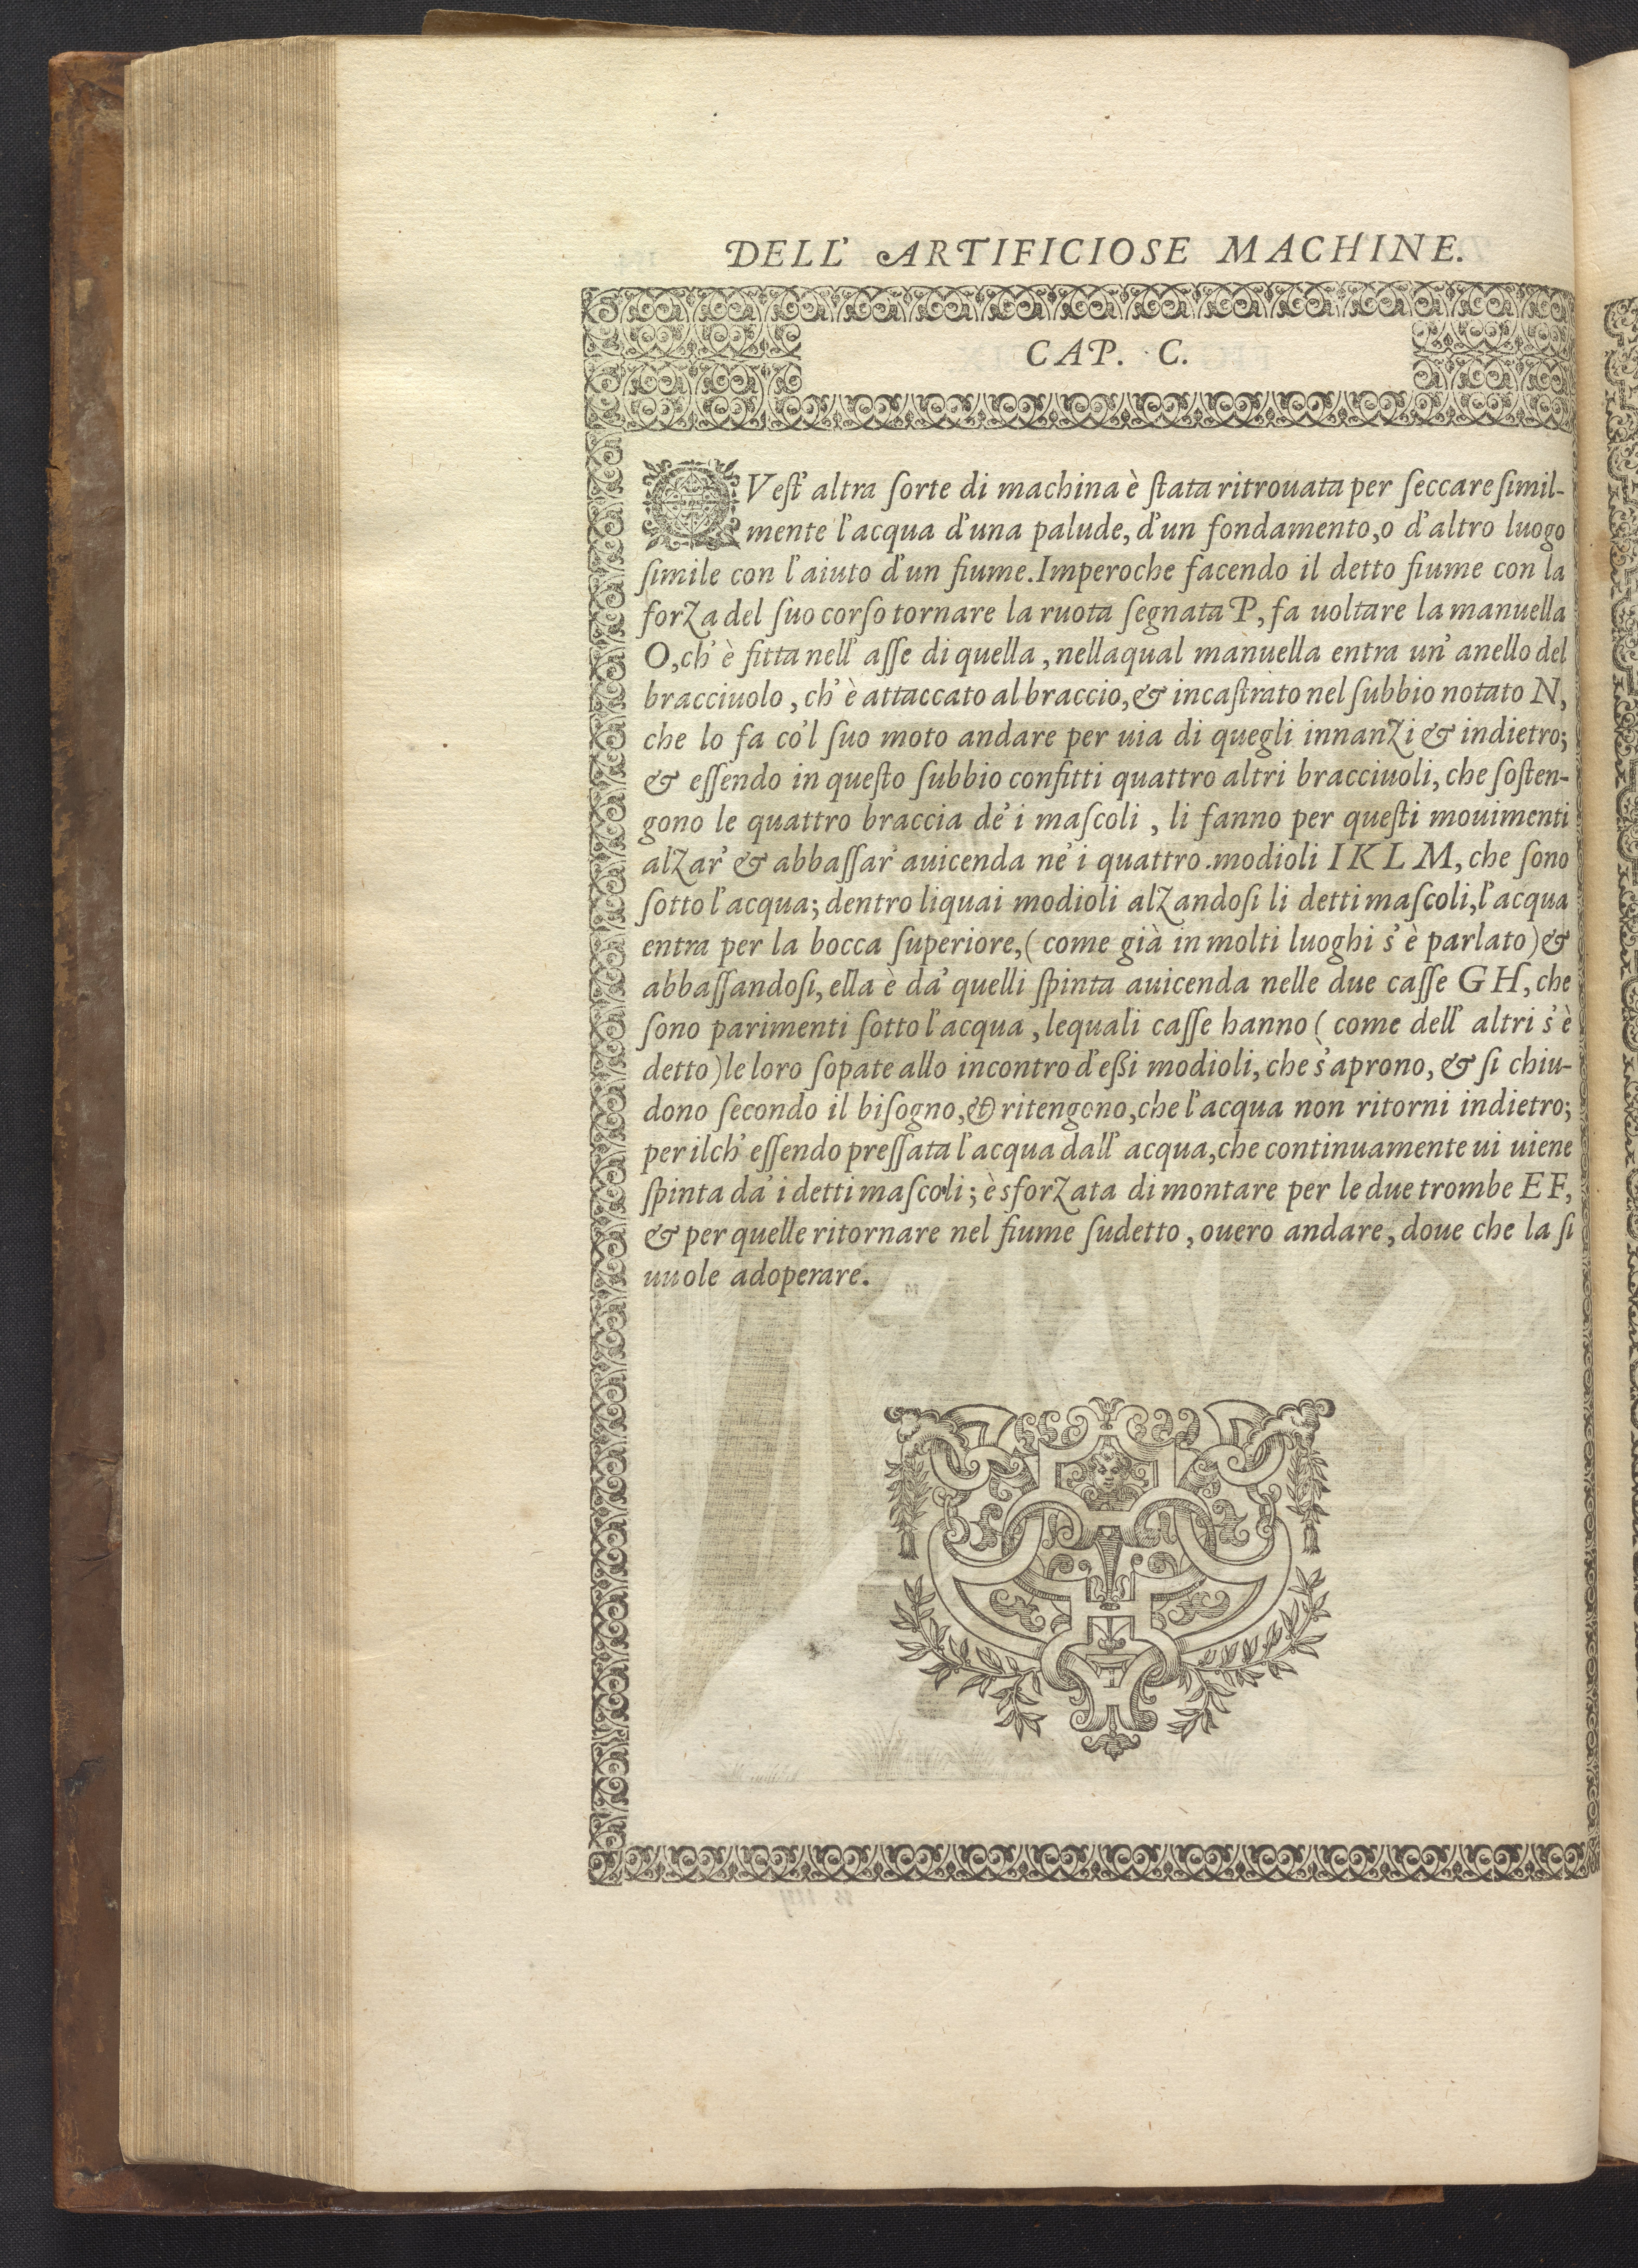 DELL' ARTIFICIOSE MACHINE.
CAP. C.
QVeſt' altra ſorte di machina è ſtata ritrouata per ſeccare ſimil-
mente l'acqua d'una palude, d'un fondamento, o d'altro luogo
ſimile con l'aiuto d'un fiume. Imperoche facendo il detto fiume con la
forza del ſuo corſo tornare la ruota ſegnata P, fa uoltare la manuella
O, ch' è fitta nell' aſſe di quella, nellaqual manuella entra un' anello del
bracciuolo, ch' è attaccato al braccio, & incaſtrato nel ſubbio notato N,
che lo fa co'l ſuo moto andare per uia di quegli innanzi & indietro;
& eſſendo in queſto ſubbio confitti quattro altri bracciuoli, che ſoſten-
gono le quattro braccia de' i maſcoli, li fanno per queſti mouimenti
alzar' & abbaſſar' auicenda ne' i quattro modioli I K L M, che ſono
ſotto l'acqua; dentro liquai modioli alzandoſi li detti maſcoli, l'acqua
entra per la bocca ſuperiore, (come già in molti luoghi s' è parlato) &
abbaſſandoſi, ella è da' quelli ſpinta auicenda nelle due caſſe GH, che
ſono parimenti ſotto l'acqua, lequali caſſe hanno (come dell' altri s' è
detto) le loro ſopate allo incontro d'eßi modioli, che s'aprono, & ſi chiu-
dono ſecondo il biſogno, & ritengono, che l'acqua non ritorni indietro;
per ilch' eſſendo preſſata l'acqua dall' acqua, che continuamente ui uiene
ſpinta da' i detti maſcoli; è sforzata di montare per le due trombe EF,
& per quelle ritornare nel fiume ſudetto, ouero andare, doue che la ſi
uuole adoperare.